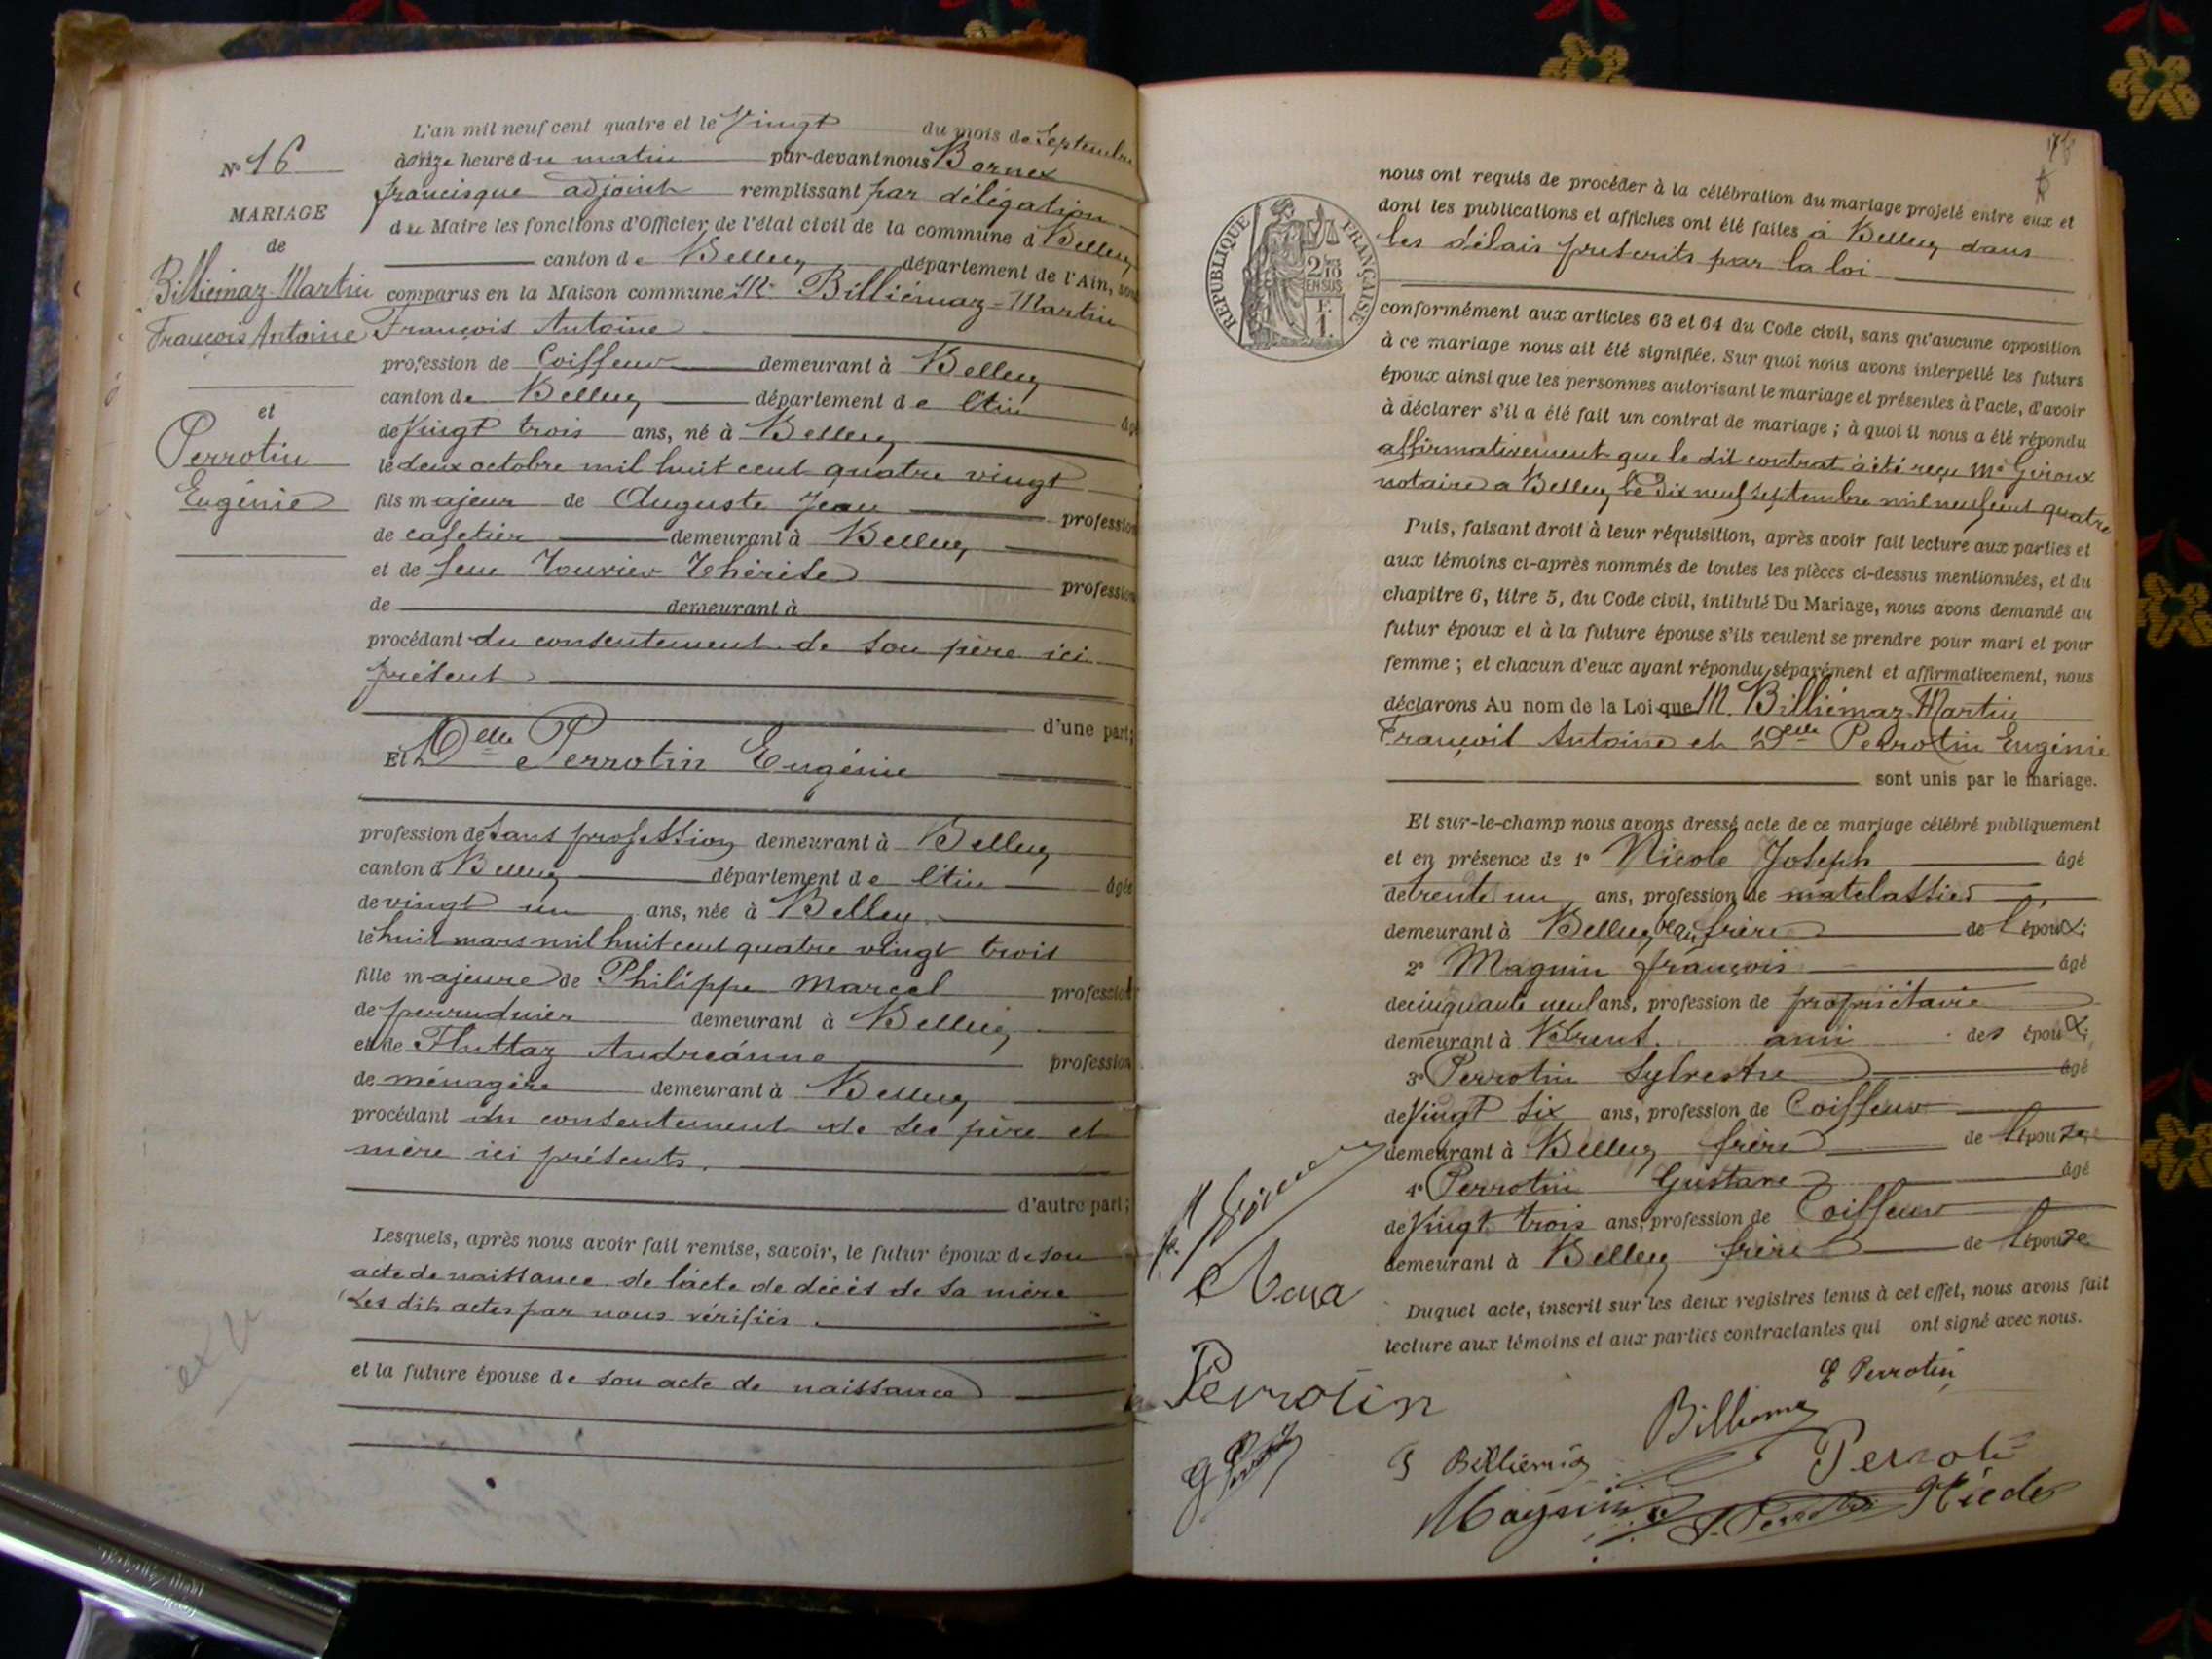 L'an mil neuf cent quatre et le Vingt du mois de Septembre
à onze heure du matin par-devant nous Bornex
francisque adjoint remplissant par délégation
du Maire les fonctions d'Officier de l'état civil de la commune d Belley
canton de Belley département de l'Ain, sont
comparus en la Maison commune M. Billiémaz-Martin
François Antoine
profession de Coiffeur demeurant à Belley
canton de Belley département de l'Ain âgé
de Vingt trois ans, né à Belley
le deux octobre mil huit cent quatre vingt
fils majeur de Auguste Jean profession
de cafetier demeurant à Belley
et de feue Thérèse profession
de demeurant à
procédant du consentement de son père ici
présent
d'une part;
Et Delle Perrotin Eugénie
profession de sans profession demeurant à Belley
canton d Belley département de l'Ain âgée
de vingt un ans, née à Belley
le huit mars mil huit cent quatre vingt trois
fille majeure de Philippe Marcel profession
de demeurant à Belley
et de Fluttaz Andréanne profession
de ménagère demeurant à Belley
procédant du consentement de ses père et
mère ici présents.
d'autre part;
Lesquels, après nous avoir fait remise, savoir, le futur époux de son
acte de naissance de l'acte de décès de sa mère
Les dits actes par nous vérifiés.
et la future épouse de son acte de naissance
No 16
MARIAGE
de
Billiémaz-Martin
François Antoine
et
Perrotin
Eugénie
RÉPUBLIQUE FRANÇAISE
2/10
EN SUS
F.
1.
nous ont requis de procéder à la célébration du mariage projeté entre eux et
dont les publications et affiches ont été faites à Belley dans
les délais prescrits par la loi
conformément aux articles 63 et 64 du Code civil, sans qu'aucune opposition
à ce mariage nous ait été signifiée. Sur quoi nous avons interpellé les futurs
époux ainsi que les personnes autorisant le mariage et présentes à l'acte, d'avoir
à déclarer s'il a été fait un contrat de mariage; à quoi il nous a été répondu
affirmativement que le dit contrat a été reçu Me Giroux
notaire a Belley le dix neuf septembre mil neuf cent quatre
Puis, faisant droit à leur réquisition, après avoir fait lecture aux parties et
aux témoins ci-après nommés de toutes les pièces ci-dessus mentionnées, et du
chapitre 6, titre 5, du Code civil, intitulé Du Mariage, nous avons demandé au
futur époux et à la future épouse s'ils veulent se prendre pour mari et pour
femme; et chacun d'eux ayant répondu séparément et affirmativement, nous
déclarons Au nom de la Loi que M. Billiémaz-Martin
François Antoine et Delle Perrotin Eugénie
sont unis par le mariage.
Et sur-le-champ nous avons dressé acte de ce mariage célébré publiquement
et en présence de 1° Nicole Joseph âgé
de trente un ans, profession de matelassier
demeurant à Belley beau frère de l'époux;
2° Magnin françois âgé
de cinquante neuf ans, profession de propriétaire
demeurant à ami des époux;
3° Perrotin Sylvestre âgé
de Vingt six ans, profession de Coiffeur
demeurant à Belley frère de l'épouze
4° Perrotin Gustave âgé
de Vingt trois ans, profession de Coiffeur
demeurant à Belley frère de l'épouze
Duquel acte, inscrit sur les deux registres tenus à cet effet, nous avons fait
lecture aux témoins et aux parties contractantes qui ont signé avec nous.
E Perrotin
Billiemaz
Perrotin
Magnin
S. Perrotin
Perrotin
G Perrotin